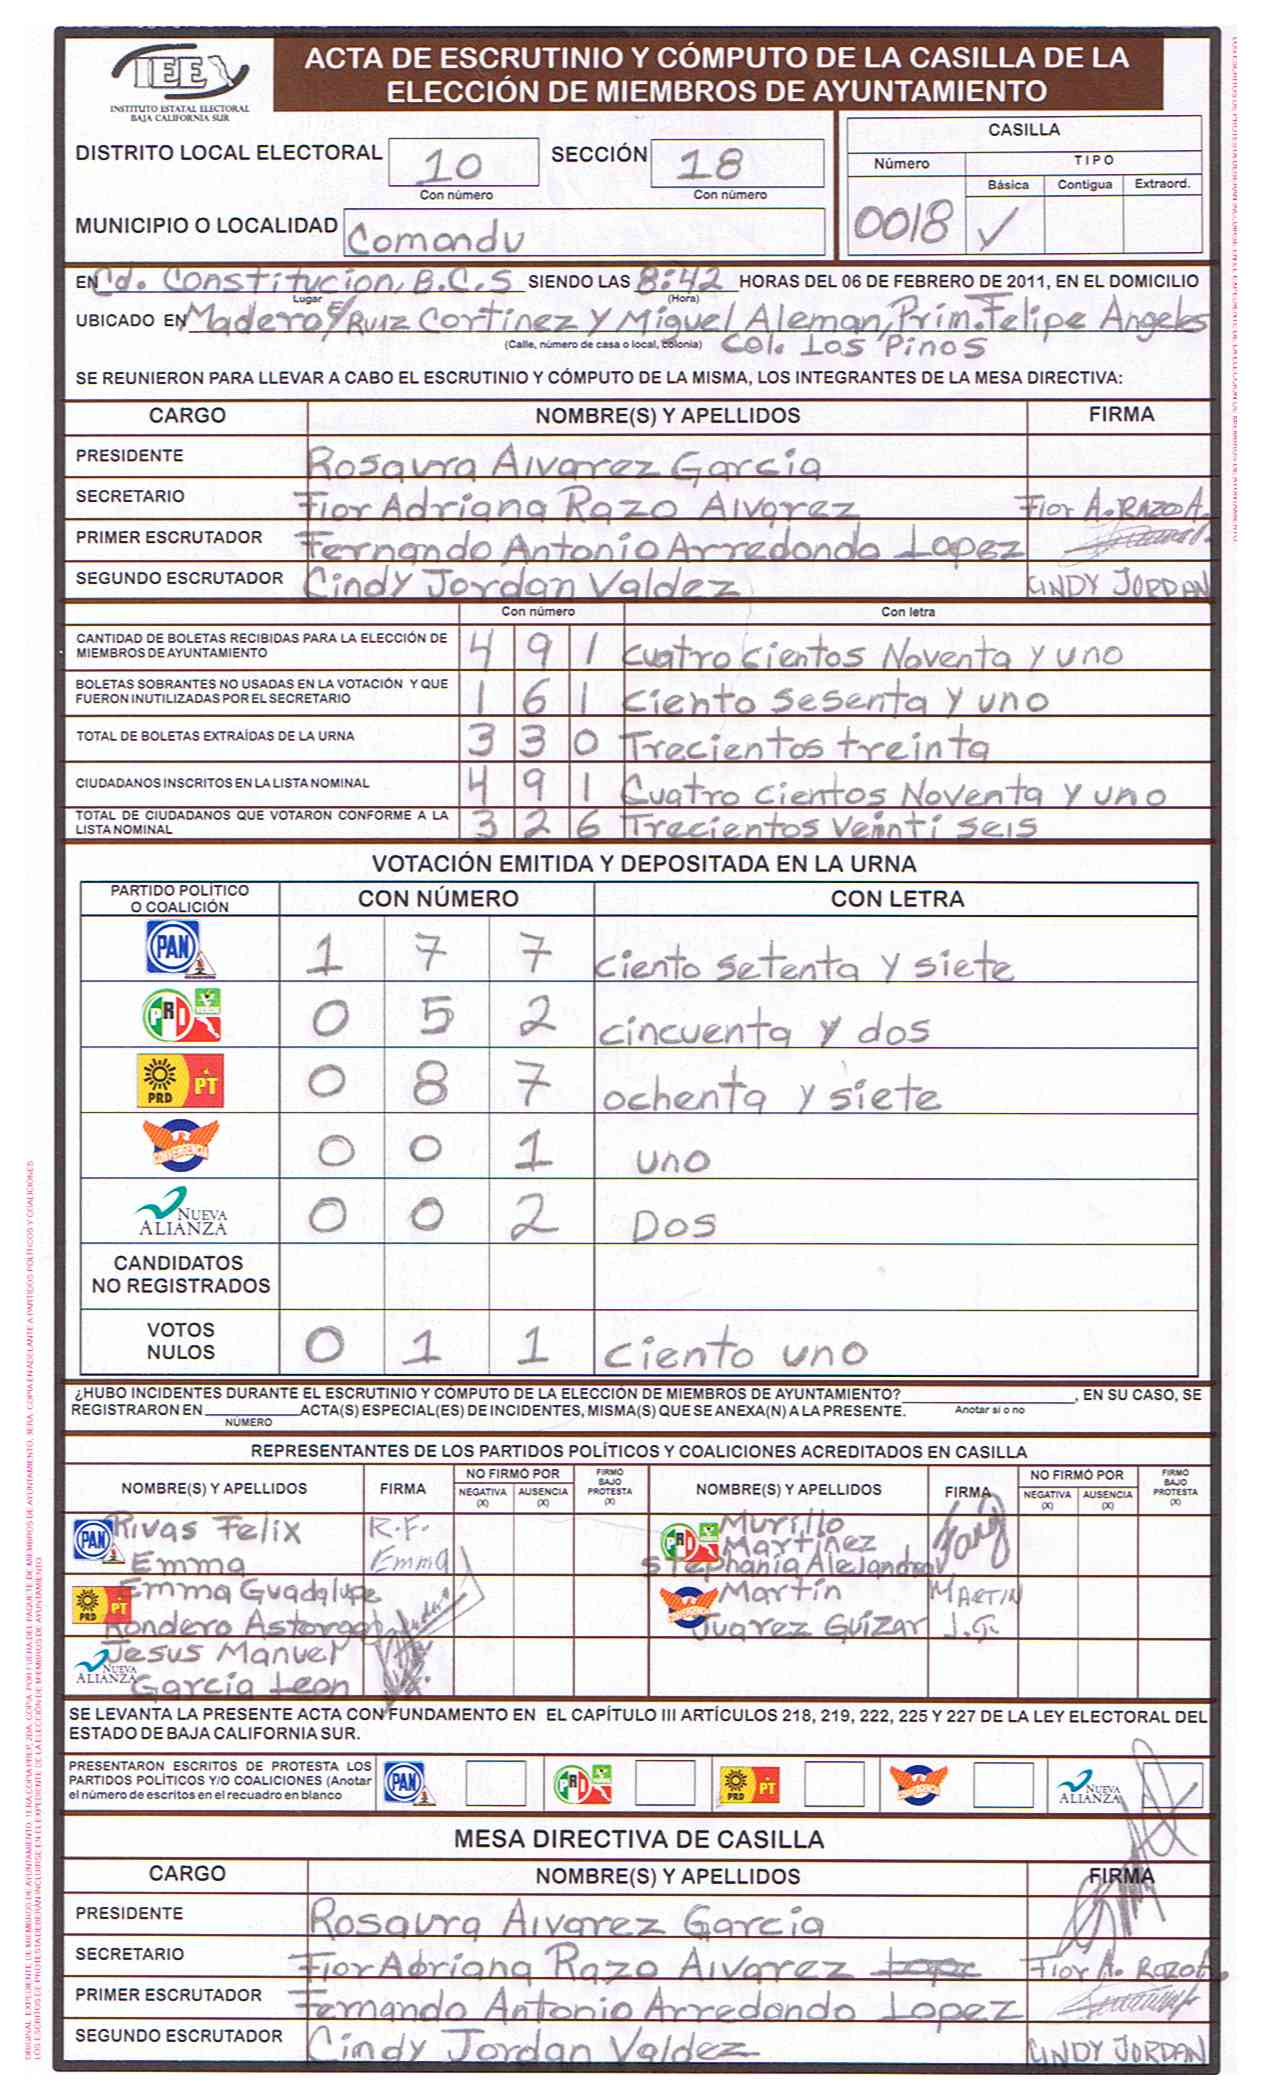 IEE
INSTITUTO ESTATAL ELECTORAL
BAJA CALIFORNIA SUR
ACTA DE ESCRUTINIO Y CÓMPUTO DE LA CASILLA DE LA
ELECCIÓN DE MIEMBROS DE AYUNTAMIENTO
DISTRITO LOCAL ELECTORAL 10 SECCIÓN 18
Con número Con número
MUNICIPIO O LOCALIDAD Comondu
CASILLA
Número TIPO
Básica Contigua Extraord.
0018 ✓
EN Cd. Constitucion, B.C.S SIENDO LAS 8:42 HORAS DEL 06 DE FEBRERO DE 2011, EN EL DOMICILIO
Lugar (Hora)
UBICADO EN Madero e/ Ruiz Cortinez y Miguel Aleman, Prim. Felipe Angeles
(Calle, número de casa o local, colonia) Col. Los Pinos
SE REUNIERON PARA LLEVAR A CABO EL ESCRUTINIO Y CÓMPUTO DE LA MISMA, LOS INTEGRANTES DE LA MESA DIRECTIVA:
CARGO NOMBRE(S) Y APELLIDOS FIRMA
PRESIDENTE Rosaura Alvarez Garcia
SECRETARIO Fior Adriana Razo Alvarez Fior A. Razo A.
PRIMER ESCRUTADOR Fernando Antonio Arredondo Lopez
SEGUNDO ESCRUTADOR Cindy Jordan Valdez CINDY JORDAN
Con número Con letra
CANTIDAD DE BOLETAS RECIBIDAS PARA LA ELECCIÓN DE
MIEMBROS DE AYUNTAMIENTO 4 9 1 cuatro cientos Noventa y uno
BOLETAS SOBRANTES NO USADAS EN LA VOTACIÓN Y QUE
FUERON INUTILIZADAS POR EL SECRETARIO 1 6 1 ciento sesenta y uno
TOTAL DE BOLETAS EXTRAÍDAS DE LA URNA 3 3 0 Trecientos treinta
CIUDADANOS INSCRITOS EN LA LISTA NOMINAL 4 9 1 Cuatro cientos Noventa y uno
TOTAL DE CIUDADANOS QUE VOTARON CONFORME A LA
LISTA NOMINAL 3 2 6 Trecientos Veinti seis
VOTACIÓN EMITIDA Y DEPOSITADA EN LA URNA
PARTIDO POLÍTICO
O COALICIÓN CON NÚMERO CON LETRA
PAN 1 7 7 ciento setenta y siete
PRI 0 5 2 cincuenta y dos
PRD PT 0 8 7 ochenta y siete
CONVERGENCIA 0 0 1 uno
NUEVA
ALIANZA 0 0 2 Dos
CANDIDATOS
NO REGISTRADOS
VOTOS
NULOS 0 1 1 ciento uno
¿HUBO INCIDENTES DURANTE EL ESCRUTINIO Y CÓMPUTO DE LA ELECCIÓN DE MIEMBROS DE AYUNTAMIENTO? , EN SU CASO, SE
REGISTRARON EN ACTA(S) ESPECIAL(ES) DE INCIDENTES, MISMA(S) QUE SE ANEXA(N) A LA PRESENTE. Anotar sí o no
NÚMERO
REPRESENTANTES DE LOS PARTIDOS POLÍTICOS Y COALICIONES ACREDITADOS EN CASILLA
NOMBRE(S) Y APELLIDOS FIRMA NO FIRMÓ POR NEGATIVA (X) AUSENCIA (X) FIRMÓ BAJO PROTESTA (X) NOMBRE(S) Y APELLIDOS FIRMA NO FIRMÓ POR NEGATIVA (X) AUSENCIA (X) FIRMÓ BAJO PROTESTA (X)
PAN Rivas Felix R.F. PRI Murillo
Emma Emma Martinez
Stephania Alejandra
PRD PT Emma Guadalupe CONVERGENCIA Martín MARTIN
Rondero Astorga Juarez Guízar J.G.
NUEVA ALIANZA Jesus Manuel
Garcia Leon
SE LEVANTA LA PRESENTE ACTA CON FUNDAMENTO EN EL CAPÍTULO III ARTÍCULOS 218, 219, 222, 225 Y 227 DE LA LEY ELECTORAL DEL
ESTADO DE BAJA CALIFORNIA SUR.
PRESENTARON ESCRITOS DE PROTESTA LOS
PARTIDOS POLÍTICOS Y/O COALICIONES (Anotar
el número de escritos en el recuadro en blanco
PAN PRI PRD PT CONVERGENCIA NUEVA ALIANZA
MESA DIRECTIVA DE CASILLA
CARGO NOMBRE(S) Y APELLIDOS FIRMA
PRESIDENTE Rosaura Alvarez Garcia
SECRETARIO Fior Adriana Razo Alvarez Fior A. Razo A.
PRIMER ESCRUTADOR Fernando Antonio Arredondo Lopez
SEGUNDO ESCRUTADOR Cindy Jordan Valdez CINDY JORDAN